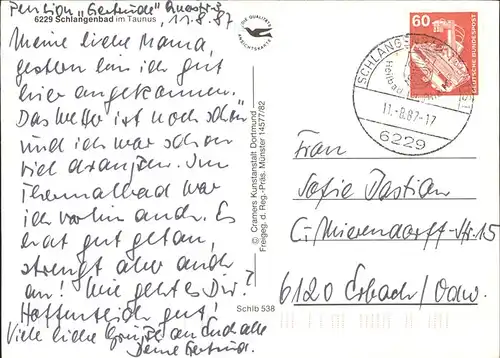 Pension "Gertrude"
6229 Schlangenbad im Taunus, 11.8.87
Meine liebe Mama,
gestern bin ich gut
hier angekommen.
Das Wetter ist noch schön
und ich war schon
viel draußen. Im
Thermalbad war
ich vorhin auch. Es
hat gut getan,
strengt aber auch
an! Wie geht es Dir?
Hoffentlich gut!
Viele liebe Grüße an Euch alle
Deine Gertrud.
DIE QUALITÄTS
ANSICHTSKARTE
© Cramers Kunstanstalt Dortmund
Freigeg. d. Reg.-Präs. Münster 14577/82
Schlb 538
60
DEUTSCHE BUNDESPOST
SCHLANGENBAD
11.-8.87-17
6229
Frau
Sofie Bastian
C.-Mierendorff-Str. 15
6120 Erbach/Odw.